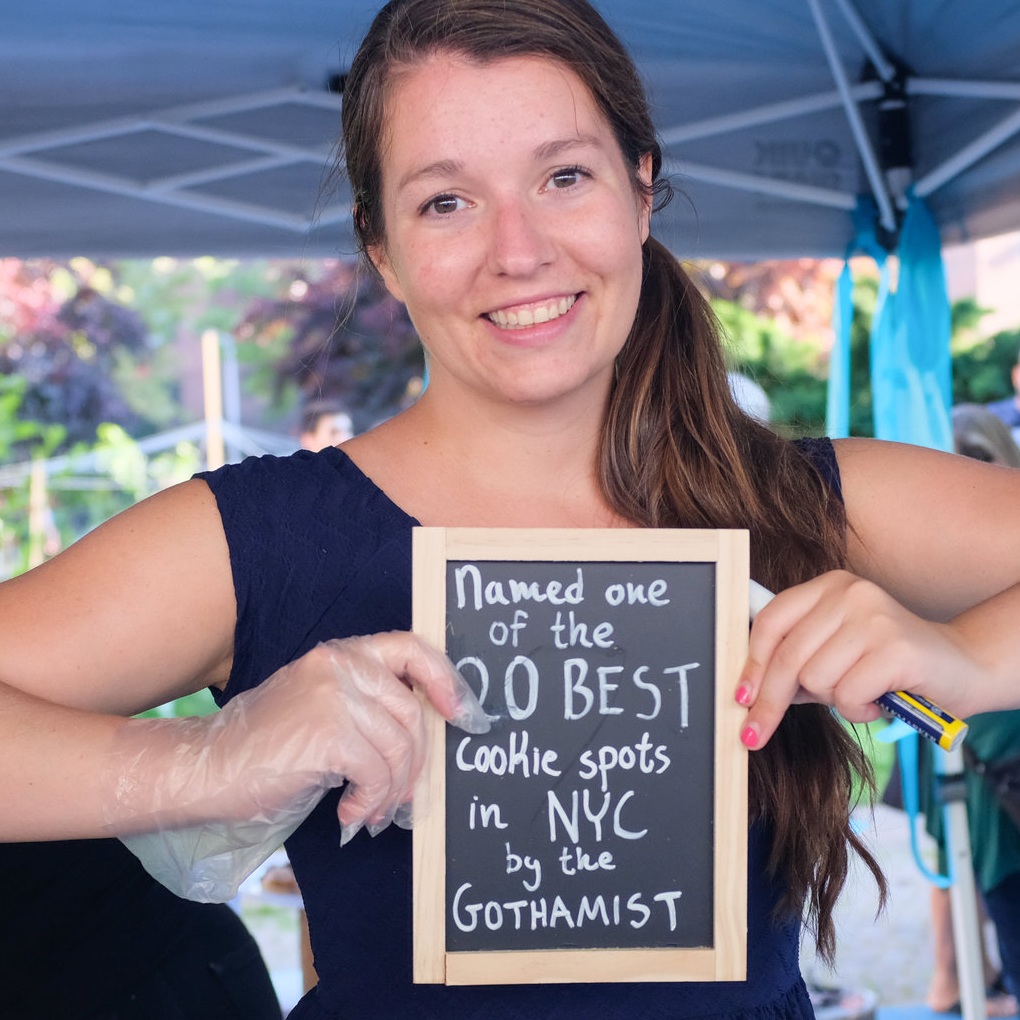 Named one
of the
20 BEST
cookie spots
in NYC
by the
GOTHAMIST